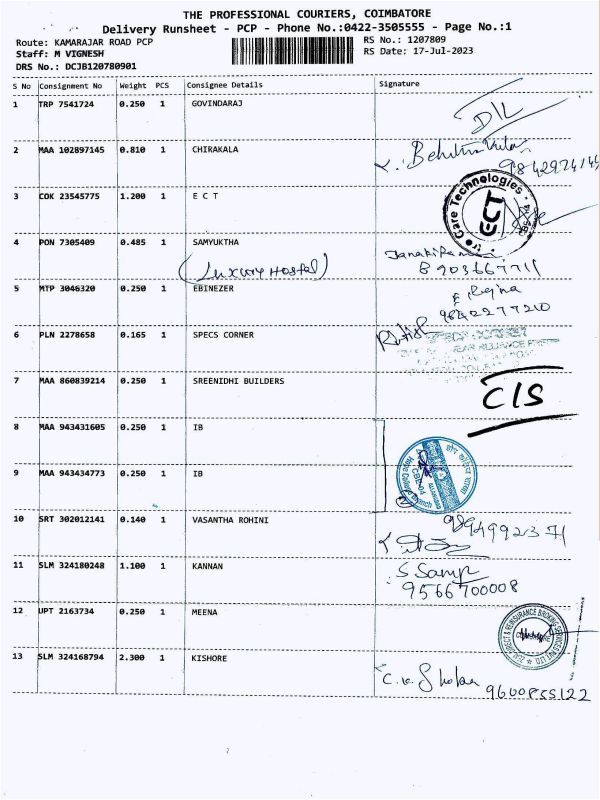 THE PROFESSIONAL COURIERS, COIMBATORE
Delivery Runsheet - PCP - Phone No.:0422-3505555 - Page No.:1
Route: KAMARAJAR ROAD PCP
Staff: M VIGNESH
DRS No.: DCJB120780901
RS No.: 1207809
RS Date: 17-Jul-2023
S No Consignment No Weight PCS Consignee Details Signature
1 TRP 7541724 0.250 1 GOVINDARAJ D/L
2 MAA 102897145 0.810 1 CHIRAKALA
3 COK 23545775 1.200 1 E C T
Care Technologies
ECT
4 PON 7305409 0.485 1 SAMYUKTHA
(Luxury Hostel)
5 MTP 3046320 0.250 1 EBINEZER
Regina
6 PLN 2278658 0.165 1 SPECS CORNER
SPECS CORNER
7 MAA 860839214 0.250 1 SREENIDHI BUILDERS
C/S
8 MAA 943431605 0.250 1 IB
9 MAA 943434773 0.250 1 IB
10 SRT 302012141 0.140 1 VASANTHA ROHINI
11 SLM 324180248 1.100 1 KANNAN
9566700008
12 UPT 2163734 0.250 1 MEENA
13 SLM 324168794 2.300 1 KISHORE
9600855122